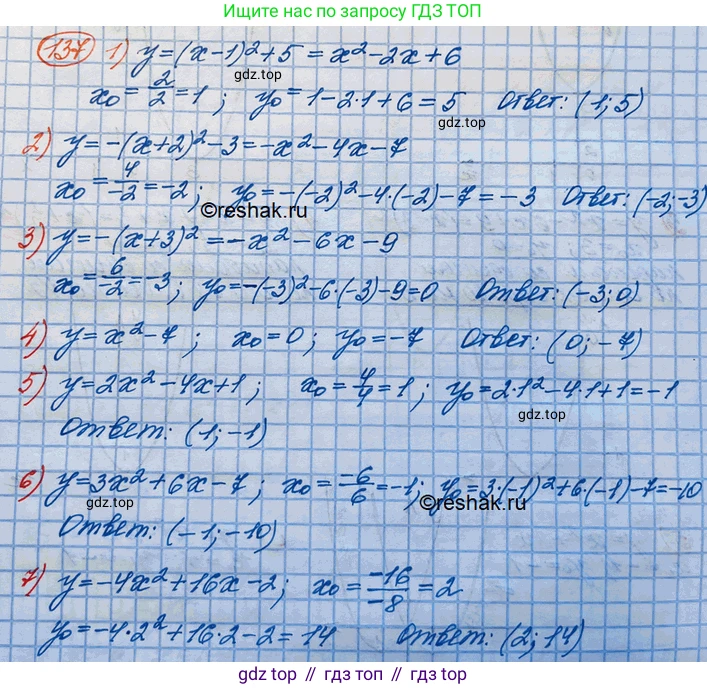 Ищите нас по запросу ГДЗ ТОП
137 1) y=(x-1)²+5 = x²-2x+6
x₀=2/2=1; y₀=1-2·1+6=5 Ответ: (1;5)
gdz.top
gdz.top
2) y=-(x+2)²-3=-x²-4x-7
x₀=4/-2=-2; y₀=-(-2)²-4·(-2)-7=-3 Ответ: (-2;-3)
©reshak.ru
3) y=-(x+3)²=-x²-6x-9
x₀=6/-2=-3; y₀=-(-3)²-6·(-3)-9=0 Ответ: (-3;0)
gdz.top
4) y=x²-7; x₀=0; y₀=-7 Ответ: (0;-7)
5) y=2x²-4x+1; x₀=4/4=1; y₀=2·1²-4·1+1=-1
gdz.top
Ответ: (1;-1)
6) y=3x²+6x-7; x₀=-6/6=-1; y₀=3·(-1)²+6·(-1)-7=-10
gdz.top
©reshak.ru
Ответ: (-1;-10)
7) y=-4x²+16x-2; x₀=-16/-8=2
y₀=-4·2²+16·2-2=14 Ответ: (2;14)
gdz.top
gdz.top // гдз.топ // gdz.top